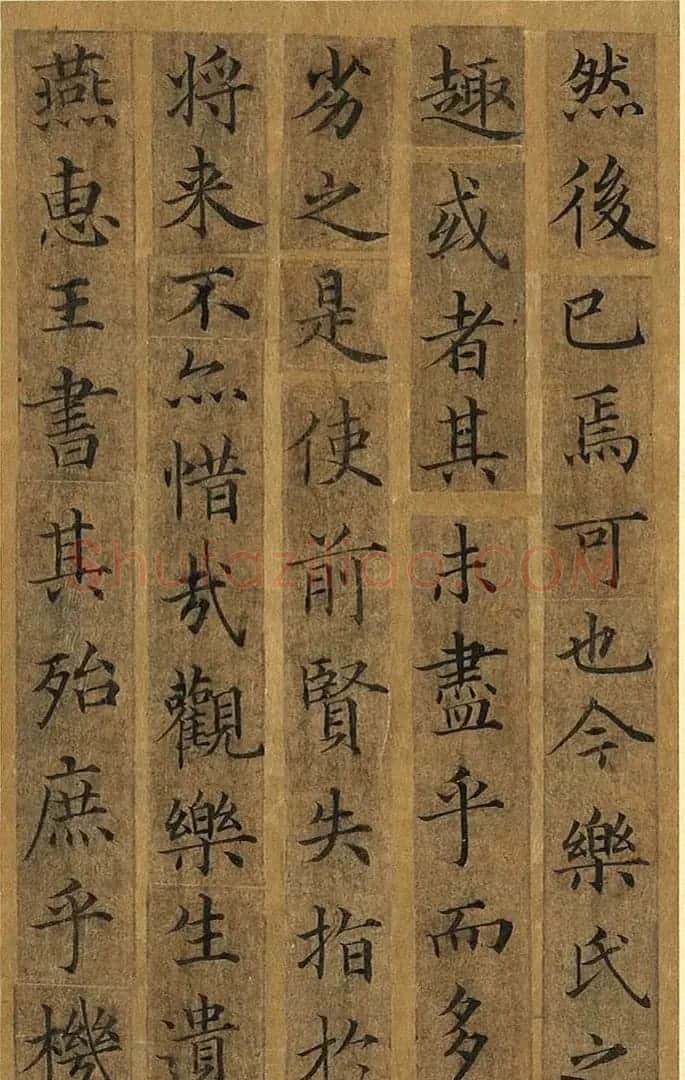 然後已焉可也今樂氏之
趣或者其未盡乎而多
劣之是使前賢失指於
将来不亦惜哉觀樂生遺
燕惠王書其殆庶乎機
shufaziliao.COM